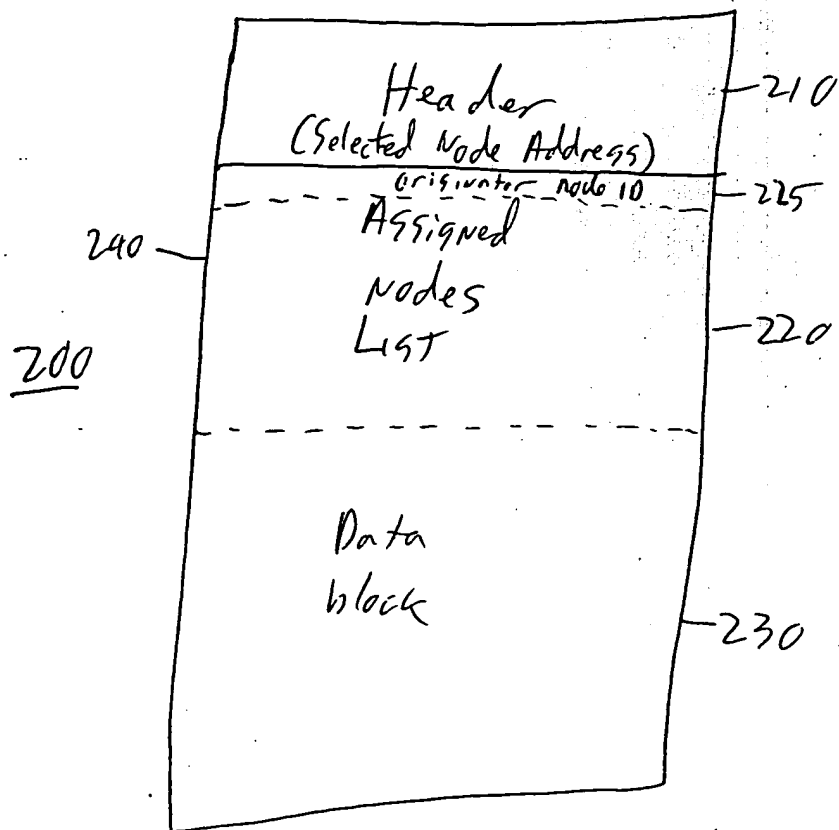 Header
(Selected Node Address)
210
originator node ID
225
Assigned
Nodes
List
240
220
200
Data
block
230